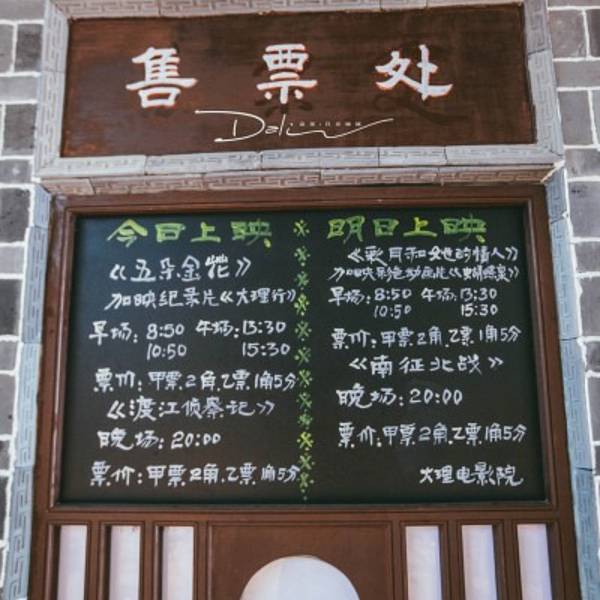 售票处
Dali
今日上映
《五朵金花》
加映纪录片《大理行》
早场:8:50 午场:13:30
10:50 15:30
票价:甲票2角.乙票1角5分
《渡江侦察记》
晚场:20:00
票价:甲票2角.乙票1角5分
明日上映
《彩月和她的情人》
加映彩色动画片《蝴蝶泉》
早场:8:50 午场:13:30
10:50 15:30
票价:甲票2角.乙票1角5分
《南征北战》
晚场:20:00
票价:甲票2角.乙票1角5分
大理电影院